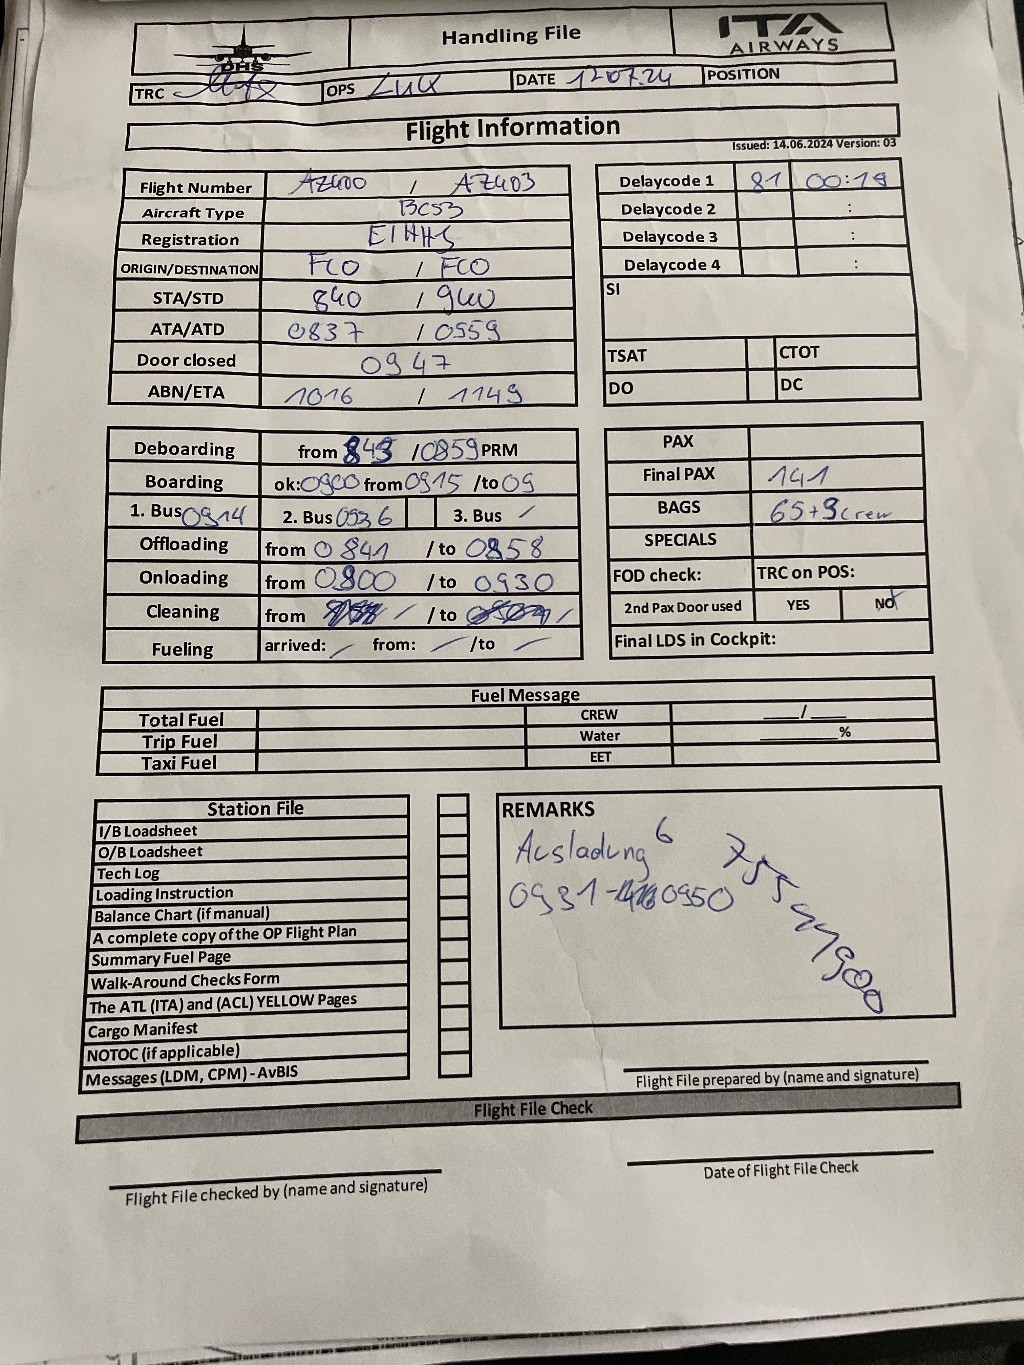 DHS
Handling File
ITA
AIRWAYS
TRC OPS DATE 12.07.24 POSITION
Flight Information
Issued: 14.06.2024 Version: 03
Flight Number AZ400 / AZ403
Aircraft Type BCS3
Registration EIHHS
ORIGIN/DESTINATION FCO / FCO
STA/STD 840 / 940
ATA/ATD 0837 / 0959
Door closed 0947
ABN/ETA 1016 / 1149
Delaycode 1 81 00:19
Delaycode 2 :
Delaycode 3 :
Delaycode 4 :
SI
TSAT CTOT
DO DC
Deboarding from 843 /0859 PRM
Boarding ok: 0900 from 0915 /to 09
1. Bus 0914 2. Bus 0936 3. Bus /
Offloading from 0841 /to 0858
Onloading from 0900 /to 0930
Cleaning from / /to /
Fueling arrived: / from: / /to /
PAX
Final PAX 141
BAGS 65+9crew
SPECIALS
FOD check: TRC on POS:
2nd Pax Door used YES NO
Final LDS in Cockpit:
Fuel Message
Total Fuel CREW ___/___
Trip Fuel Water ______%
Taxi Fuel EET
Station File
I/B Loadsheet
O/B Loadsheet
Tech Log
Loading Instruction
Balance Chart (if manual)
A complete copy of the OP Flight Plan
Summary Fuel Page
Walk-Around Checks Form
The ATL (ITA) and (ACL) YELLOW Pages
Cargo Manifest
NOTOC (if applicable)
Messages (LDM, CPM) - AvBIS
REMARKS
Ausladung 6
0931 - 0950
Flight File prepared by (name and signature)
Flight File Check
Flight File checked by (name and signature)
Date of Flight File Check